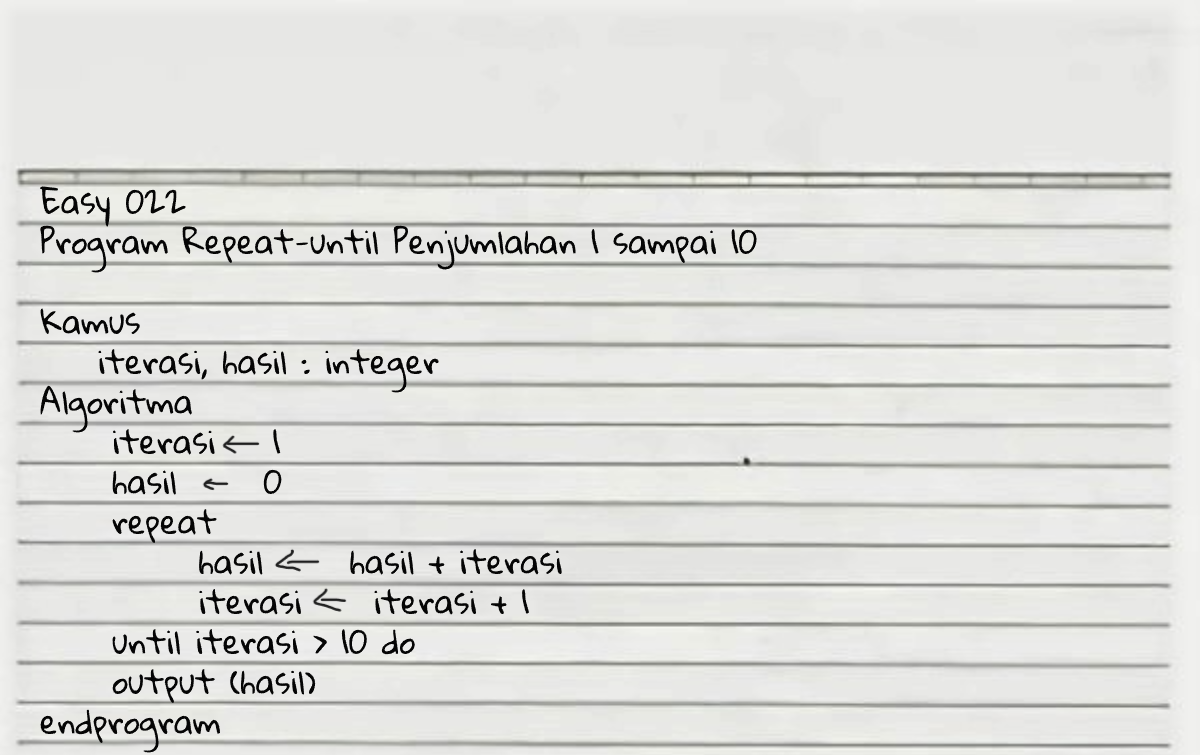 Easy 022
Program Repeat-until Penjumlahan 1 sampai 10
Kamus
iterasi, hasil : integer
Algoritma
iterasi ← 1
hasil ← 0
repeat
hasil ← hasil + iterasi
iterasi ← iterasi + 1
until iterasi > 10 do
output (hasil)
endprogram